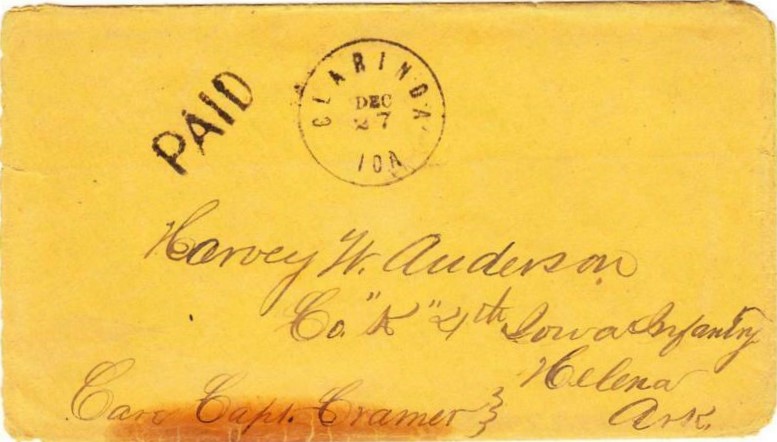 PAID
CLARINDA
DEC
27
IOA
Harvey W. Anderson
Co. "K" 4th Iowa Infantry
Helena
Care Capt. Cramer Ark.